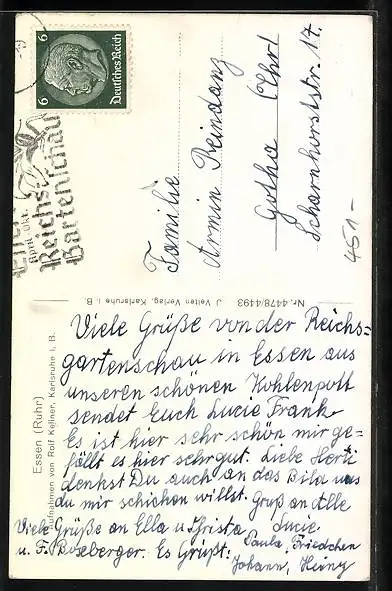 6 Deutsches Reich 6
Essen
April-Okt.
Reichs-
Gartenschau
Familie
Armin Reindanz
Gotha (Thr)
Scharnhorststr. 17.
451-
Essen (Ruhr)
Aufnahmen von Rolf Kellner, Karlsruhe i. B.
Nr. 4478/4493 J. Velten Verlag, Karlsruhe i. B.
Viele Grüße von der Reichs-
gartenschau in Essen aus
unseren schönen Kohlenpott
sendet Euch Lucie Frank
Es ist hier sehr schön mir ge-
fällt es hier sehr gut. Liebe Herti
denkst Du auch an das Bild was
du mir schicken willst. Gruß an Alle
Lucie.
Viele Grüße an Ella u.
u. F. Es Grüßt: Paula, Friedchen
Johann, Heinz